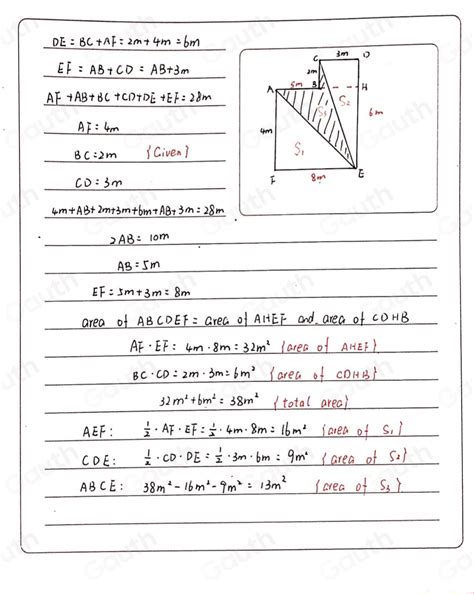 DE = BC + AF = 2m + 4m = 6m
EF = AB + CD = AB + 3m
AF + AB + BC + CD + DE + EF = 28m
AF = 4m
BC = 2m {Given}
CD = 3m
4m + AB + 2m + 3m + 6m + AB + 3m = 28m
2AB = 10m
AB = 5m
EF = 5m + 3m = 8m
area of ABCDEF = area of AHEF and area of CDHB
AF · EF = 4m · 8m = 32m² {area of AHEF}
BC · CD = 2m · 3m = 6m² {area of CDHB}
32m² + 6m² = 38m² {total area}
AEF: ½ · AF · EF = ½ · 4m · 8m = 16m² {area of S₁}
CDE: ½ · CD · DE = ½ · 3m · 6m = 9m² {area of S₂}
ABCE: 38m² - 16m² - 9m² = 13m² {area of S₃}
C 3m D
2m
A 5m B H
S₃ S₂
6m
4m
S₁
F 8m E
Gauth